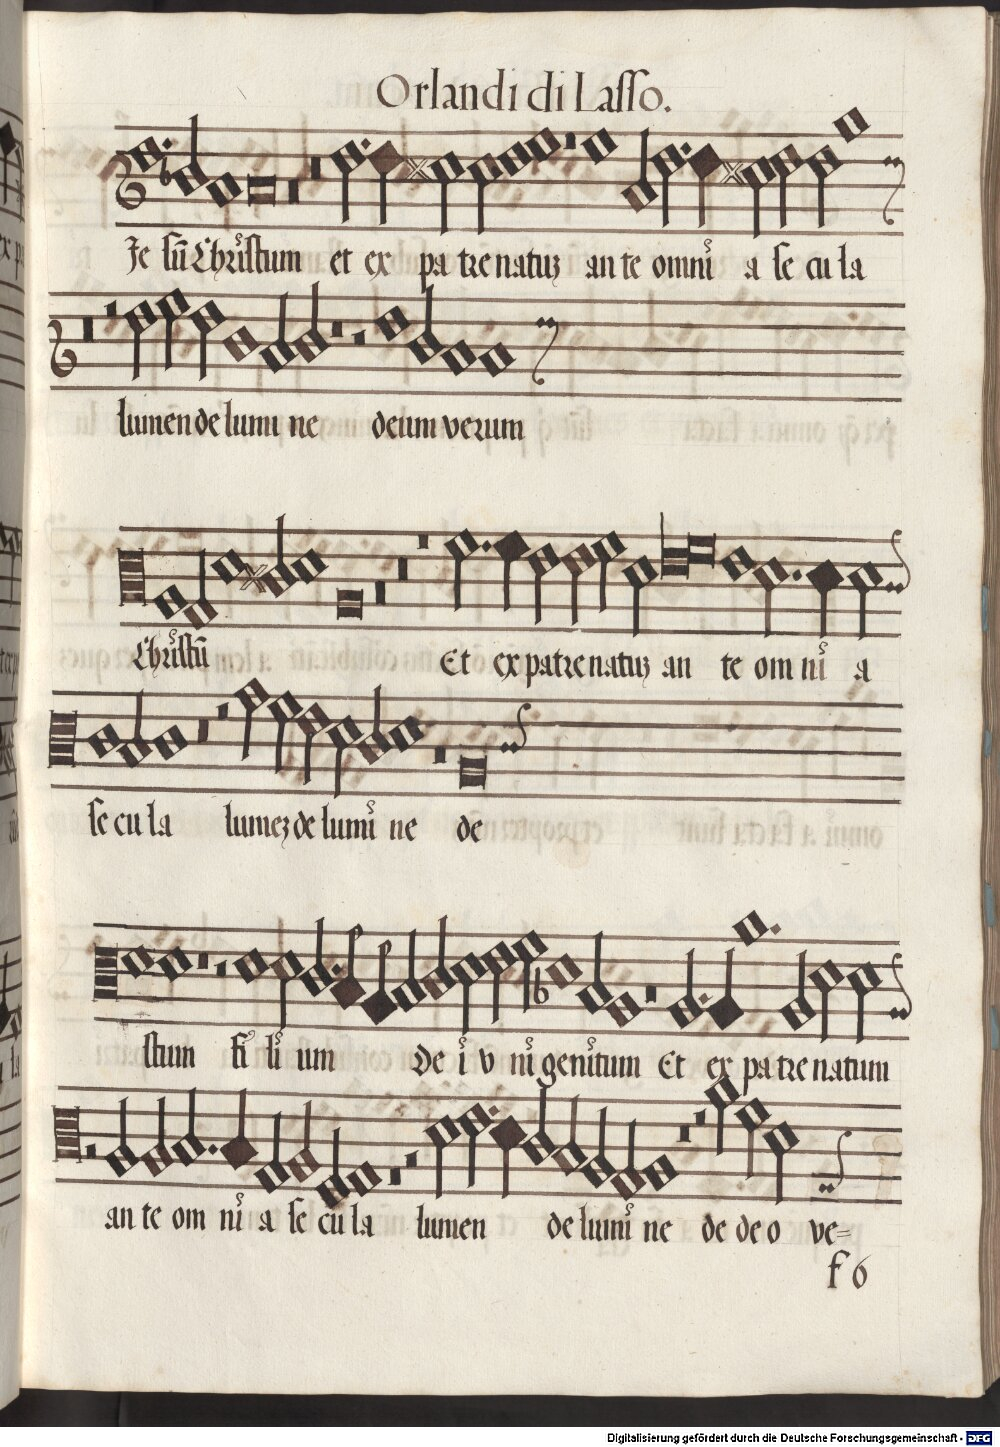 Orlandi di Lasso.
Je sũ Christum et ex pa tre natuȝ an te omni a se cu la
lumen de lumi ne deum verum
Christũ Et ex patre natuȝ an te om ni a
se cu la lumeȝ de lumi ne de
stum fi li um De i v ni genitum Et ex pa tre natum
an te om ni a se cu la lumen de lumi ne de de o ve=
f 6
Digitalisierung gefördert durch die Deutsche Forschungsgemeinschaft - DFG